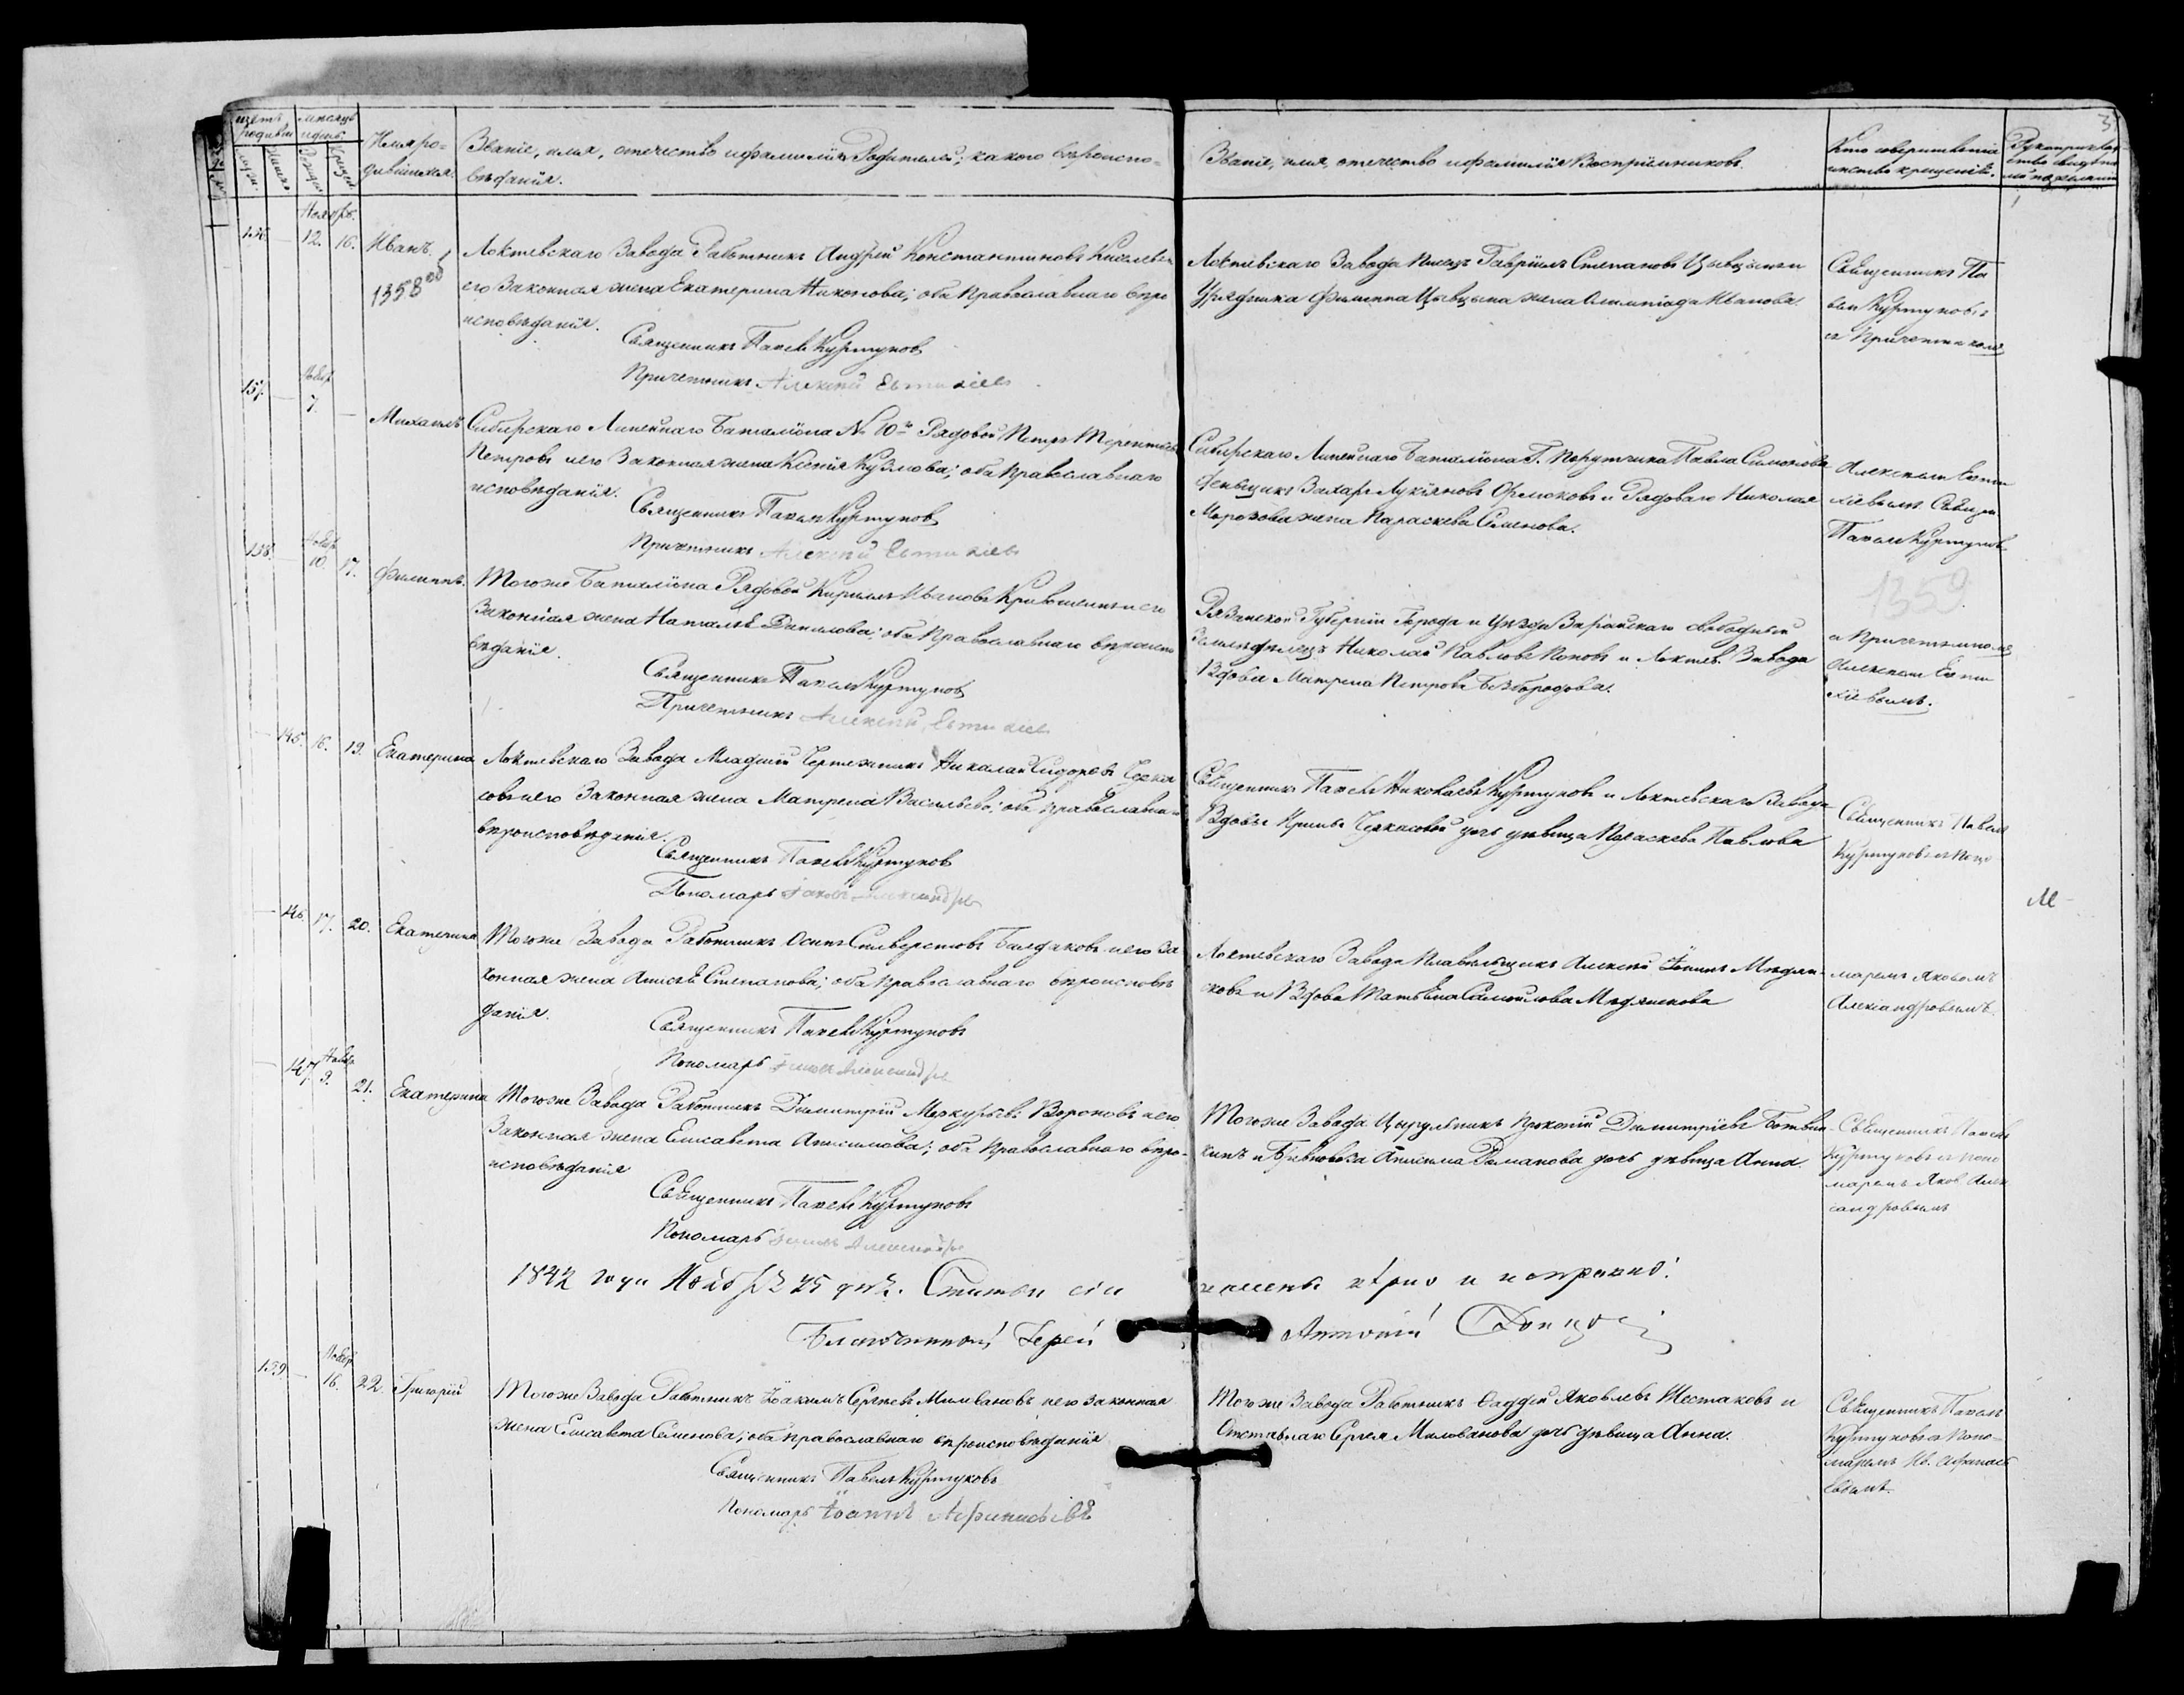 Щетъ родивш. Мѣсяцъ и день.
Имя ро-
дившихся.
Званіе, имя, отечество и фамилія Родителей; какого вѣроиспо-
вѣданія.
Званіе, имя, отечество и фамилія Воспріемниковъ.
Кто совершилъ та-
инство крещенія.
Ноябрь.
136. — 12. 16. Иванъ.
1358
Локтевскаго Завода Работникъ Андрей Константиновъ Киселевъ и
его Законная жена Екатерина Никонова; оба Православнаго вѣро
исповѣданія.
Священникъ Павелъ Куртуковъ
Причетникъ Алексѣй Евтихіевъ
Локтевскаго Завода Писецъ Гавріилъ Степановъ Цывцынъ и
Урядника Филиппа Цывцына жена Олимпіада Иванова.
Священникъ Па
велъ Куртуковъ
съ Причетникомъ
137. — Ноябр. 7. — Михаилъ
Сибирскаго Линейнаго Баталіона № 10го Рядовой Петръ Терентьевъ
Петровъ и его Законная жена Ксенія Кузмова; оба Православнаго
исповѣданія.
Священникъ Павелъ Куртуковъ
Причетникъ Алексѣй Евтихіевъ
Сибирскаго Линейнаго Баталіона П. Порутчика Павла Симонова
деньщикъ Захаръ Лукіяновъ и Рядоваго Николая
Морозова жена Параскева Семенова.
Алексѣемъ Евти
хіевымъ. Священ.
Павелъ Куртуковъ
1359
138. — Ноябр. 10. 17. Филиппъ.
Тогоже Баталіона Рядовой Кирилъ Ивановъ и его
Законная жена Наталья Данилова; оба Православнаго вѣроиспо
вѣданія.
Священникъ Павелъ Куртуковъ
Причетникъ Алексѣй Евтихіевъ
Рязанской Губерніи Города и Уѣзда Зарайскаго свободный
Земледѣлецъ Николай Павловъ Поповъ и Локтев. Завода
Вдова Матрена Петрова Безбородова.
и Причетникомъ
Алексѣемъ Евти
хіевымъ.
— 145. 16. 19. Екатерина
Локтевскаго Завода Младшій Чертежникъ Николай Сидоровъ Черка
совъ и его Законная жена Матрена Васильева; оба православна-
вѣроисповѣданія.
Священникъ Павелъ Куртуковъ
Пономарь Іаковъ Александровъ
Священникъ Павелъ Николаевъ Куртуковъ и Локтевскаго Завода
Вдовы Черкасовой дочь дѣвица Параскева Павлова
Священникъ Павелъ
Куртуковъ съ Поно
— 146. 17. 20. Екатерина
Тогоже Завода Работникъ Осипъ Силверстовъ Балдаковъ и его За
конная жена Анисья Степанова; оба Православнаго вѣроисповѣ
данія.
Священникъ Павелъ Куртуковъ
Пономарь Іаковъ Александровъ
Локтевскаго Завода Плавильщикъ Алексѣй
и Вдова Татьяна Самойлова
маремъ Яковомъ
Александровымъ.
— 147. Ноябр. 9. 21. Екатерина
Тогоже Завода Работникъ Димитрій Меркурьевъ Вороновъ и его
Законная жена Елисавета Анисимова; оба Православнаго вѣро-
исповѣданія
Священникъ Павелъ Куртуковъ
Пономарь Іаковъ Александровъ
Тогоже Завода Цырульникъ Прокопій Димитріевъ Ботвин
кинъ и Анисима Романова дочь дѣвица Анна.
Священникъ Павелъ
Куртуковъ съ Поно
маремъ Яков. Алек
сандровымъ
1842 года Ноября 25 дня. Статьи сіи писаны вѣрно и исправно.
Благочинный Іерей Антоній
139 — Ноябр. 16. 22. Григорій
Тогоже Завода Работникъ Іоакимъ Сергѣевъ Миловановъ и его законная
жена Елисавета Семенова; оба Православнаго вѣроисповѣданія
Священникъ Павелъ Куртуковъ
Пономарь Іоаннъ Афанасьевъ
Тогоже Завода Работникъ Фаддей Яковлевъ Шестаковъ и
Отставнаго Сергея Милованова дочь дѣвица Анна.
Священникъ Павелъ
Куртуковъ съ Поно-
маремъ Ив. Афанась
евымъ.